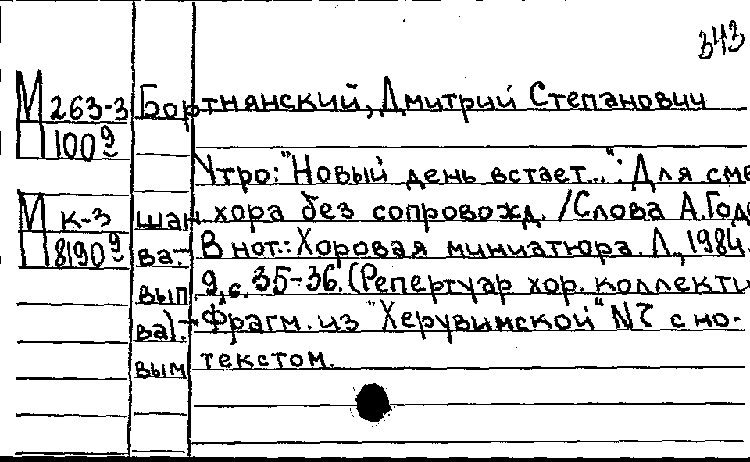 343
М 263-3 Бортнянский, Дмитрий Степанович
П 100 9
Утро: "Новый день встает...": Для сме
М к-3 шан. хора без сопровожд. /Слова А.Годо
П 8190 9 ва.- В нот.: Хоровая миниатюра. Л., 1984.
вып. 9, с. 35-36. (Репертуар хор. коллекти
ва).- Фрагм. из "Херувимской" №7 с но-
вым текстом.